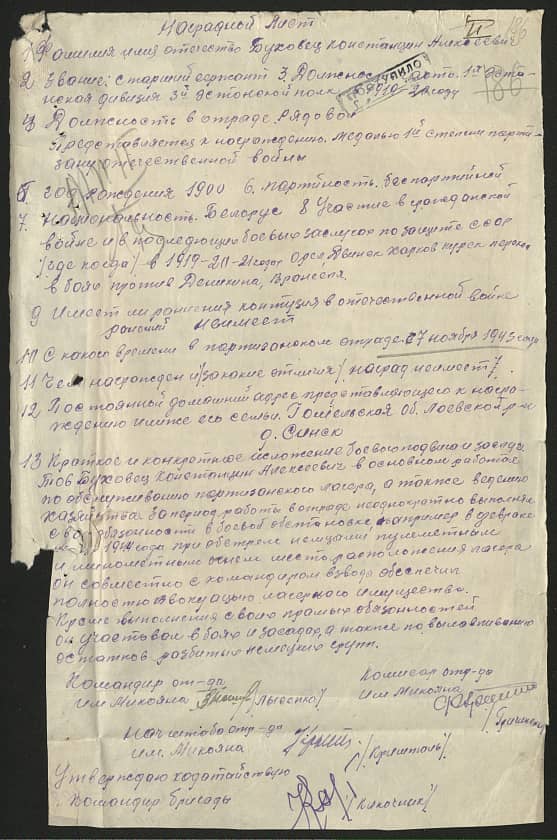 Наградной лист
1. Фамилия имя отечество Буховец Константин Алексеевич
2. Звание: старший сержант 3. Должность
нская дивизия 3й эстонской полк 1919-21 году
ПОСТУПИЛО
4 Должность в отраде рядовой
Представляется к награждению. Медалью 1й степени парти-
зану отечественной войны
5 год рождения 1900 6. партийность беспартийной
7. Национальность. Белорус 8 Участие в гражданской
войне и в последующих боевых заслугах по защите ссср
/где когда/ в 1919-20-21 годах Орел Двинск Харков курск
в боях против Деникина, Врангеля.
9 Имеет ли ранения контузия в отечественной войне
ранений неимеет
10 С какого времени в партизанском отраде 27 ноября 1943 года
11 Чем награжден и /за какие отличия/ наград неимеет
12 Постоянной домашний адрес представляющего к награ-
ждению и его семьи. Гомельская Об. Лоевской р-н
д. Синск
13 Краткое и конкретное изложение боевого подвига и заслуг
Тов Буховец Константин Алексеевич в основном работах
по обслуживанию партизанского лагера, а также ведению
Хазяйства за период работы в отраде неоднократно выполнял
свои обазонности в боевой обстановке, например в феврале
1944 года при обстреле немцами пулеметным
и минометным огнем место расположения лагера
он совместно с командиром взвода обеспечил
полностю эвокуацию лагерного имущества.
Кроме выполнения своих прямых обазонностей
он участвовал в боях и засадах, а также по вылавливанию
остатков разбитых немецких групп.
Командир от-да
им Микояна /Лысенко/
Комисар отр-да
им Микояна
Нач штаба отр-да
им. Микояна /Кришталь/
Утверждаю ходатайствую
Командир бригады